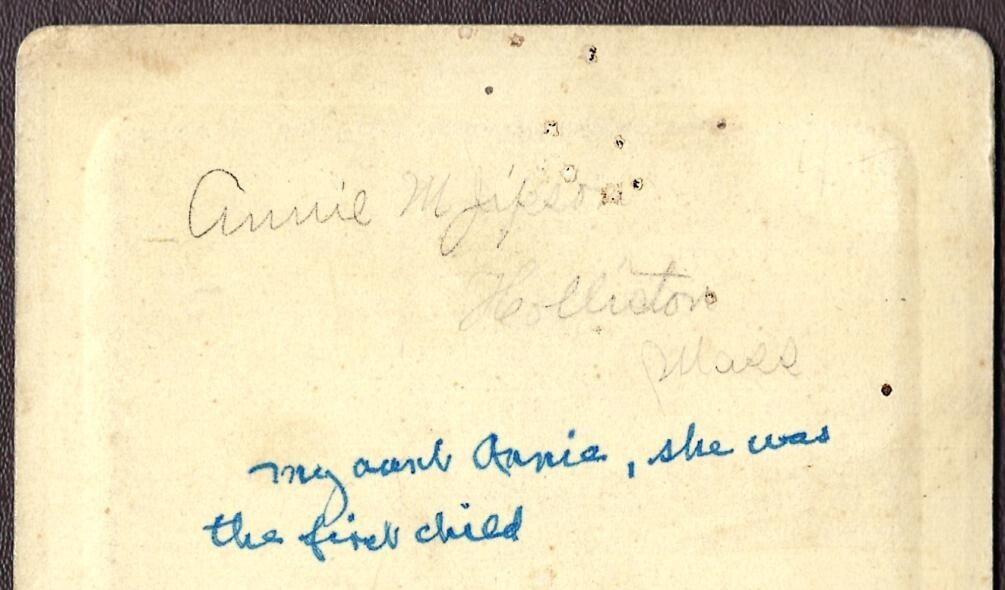 Annie M Jipson
Holliston
Mass
my aunt Annie, she was
the first child